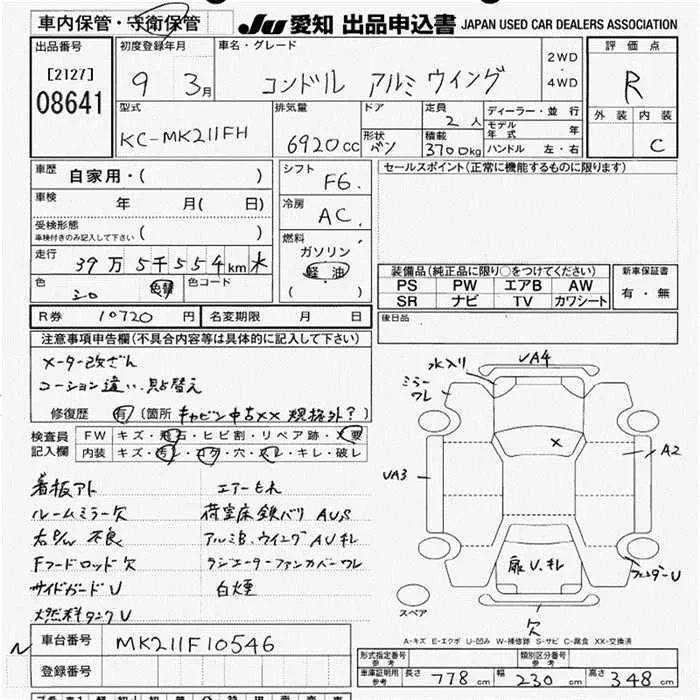 車内保管・守衛保管 JU 愛知 出品申込書 JAPAN USED CAR DEALERS ASSOCIATION
出品番号 初度登録年月 車名・グレード 2WD ・ 4WD 評価点
[2127] 9 3月 コンドル アルミウイング R
08641
型式 排気量 ドア 定員 2人 ディーラー・並行 外装 内装
KC-MK211FH 6920cc 形状 バン 積載 3700kg モデル年式 年 C
ハンドル 左・右
車歴 自家用・( ) シフト F6. セールスポイント(正常に機能するものに限ります)
車検 年 月( 日) 冷房 AC.
受検形態
車検付きのみ記入して下さい ( ) 燃料
走行 39万5千554km ガソリン
軽油
( )
色 シロ 色替 色コード 装備品(純正品に限り○をつけてください) 新車保証書
PS PW エアB AW 有・無
SR ナビ TV カワシート
R券 10720円 名変期限 月 日 後日品
注意事項申告欄(不具合内容等は具体的に記入して下さい)
メーター改ざん
コーション違い、貼替え
修復歴 有 (箇所 キャビン中古XX 規格外?)
検査員 FW キズ・飛石・ヒビ割・リペア跡・X要
記入欄 内装 キズ・汚レ・コゲ・穴・スレ・キレ・破レ
看板アト エアーもれ
ルームミラー欠 荷室床鉄バリ AUS
右P/W 不良 アルミB、ウイングAUキレ
Fフードロッド欠 ラジエーターファンカバーワレ
サイドガードU 白煙
燃料タンクU
水入リ
UA4
ミラーワレ
X
A2
UA3
扉U、キレ
フェンダーU
スペア
欠
A-キズ E-エクボ U-凹み W-補修跡 S-サビ C-腐食 XX-交換済
車台番号 MK211F10546
登録番号
形式指定番号 参考 類別区分番号 参考
車庫証明用 参考 長さ 778cm 幅 230cm 高さ 348cm